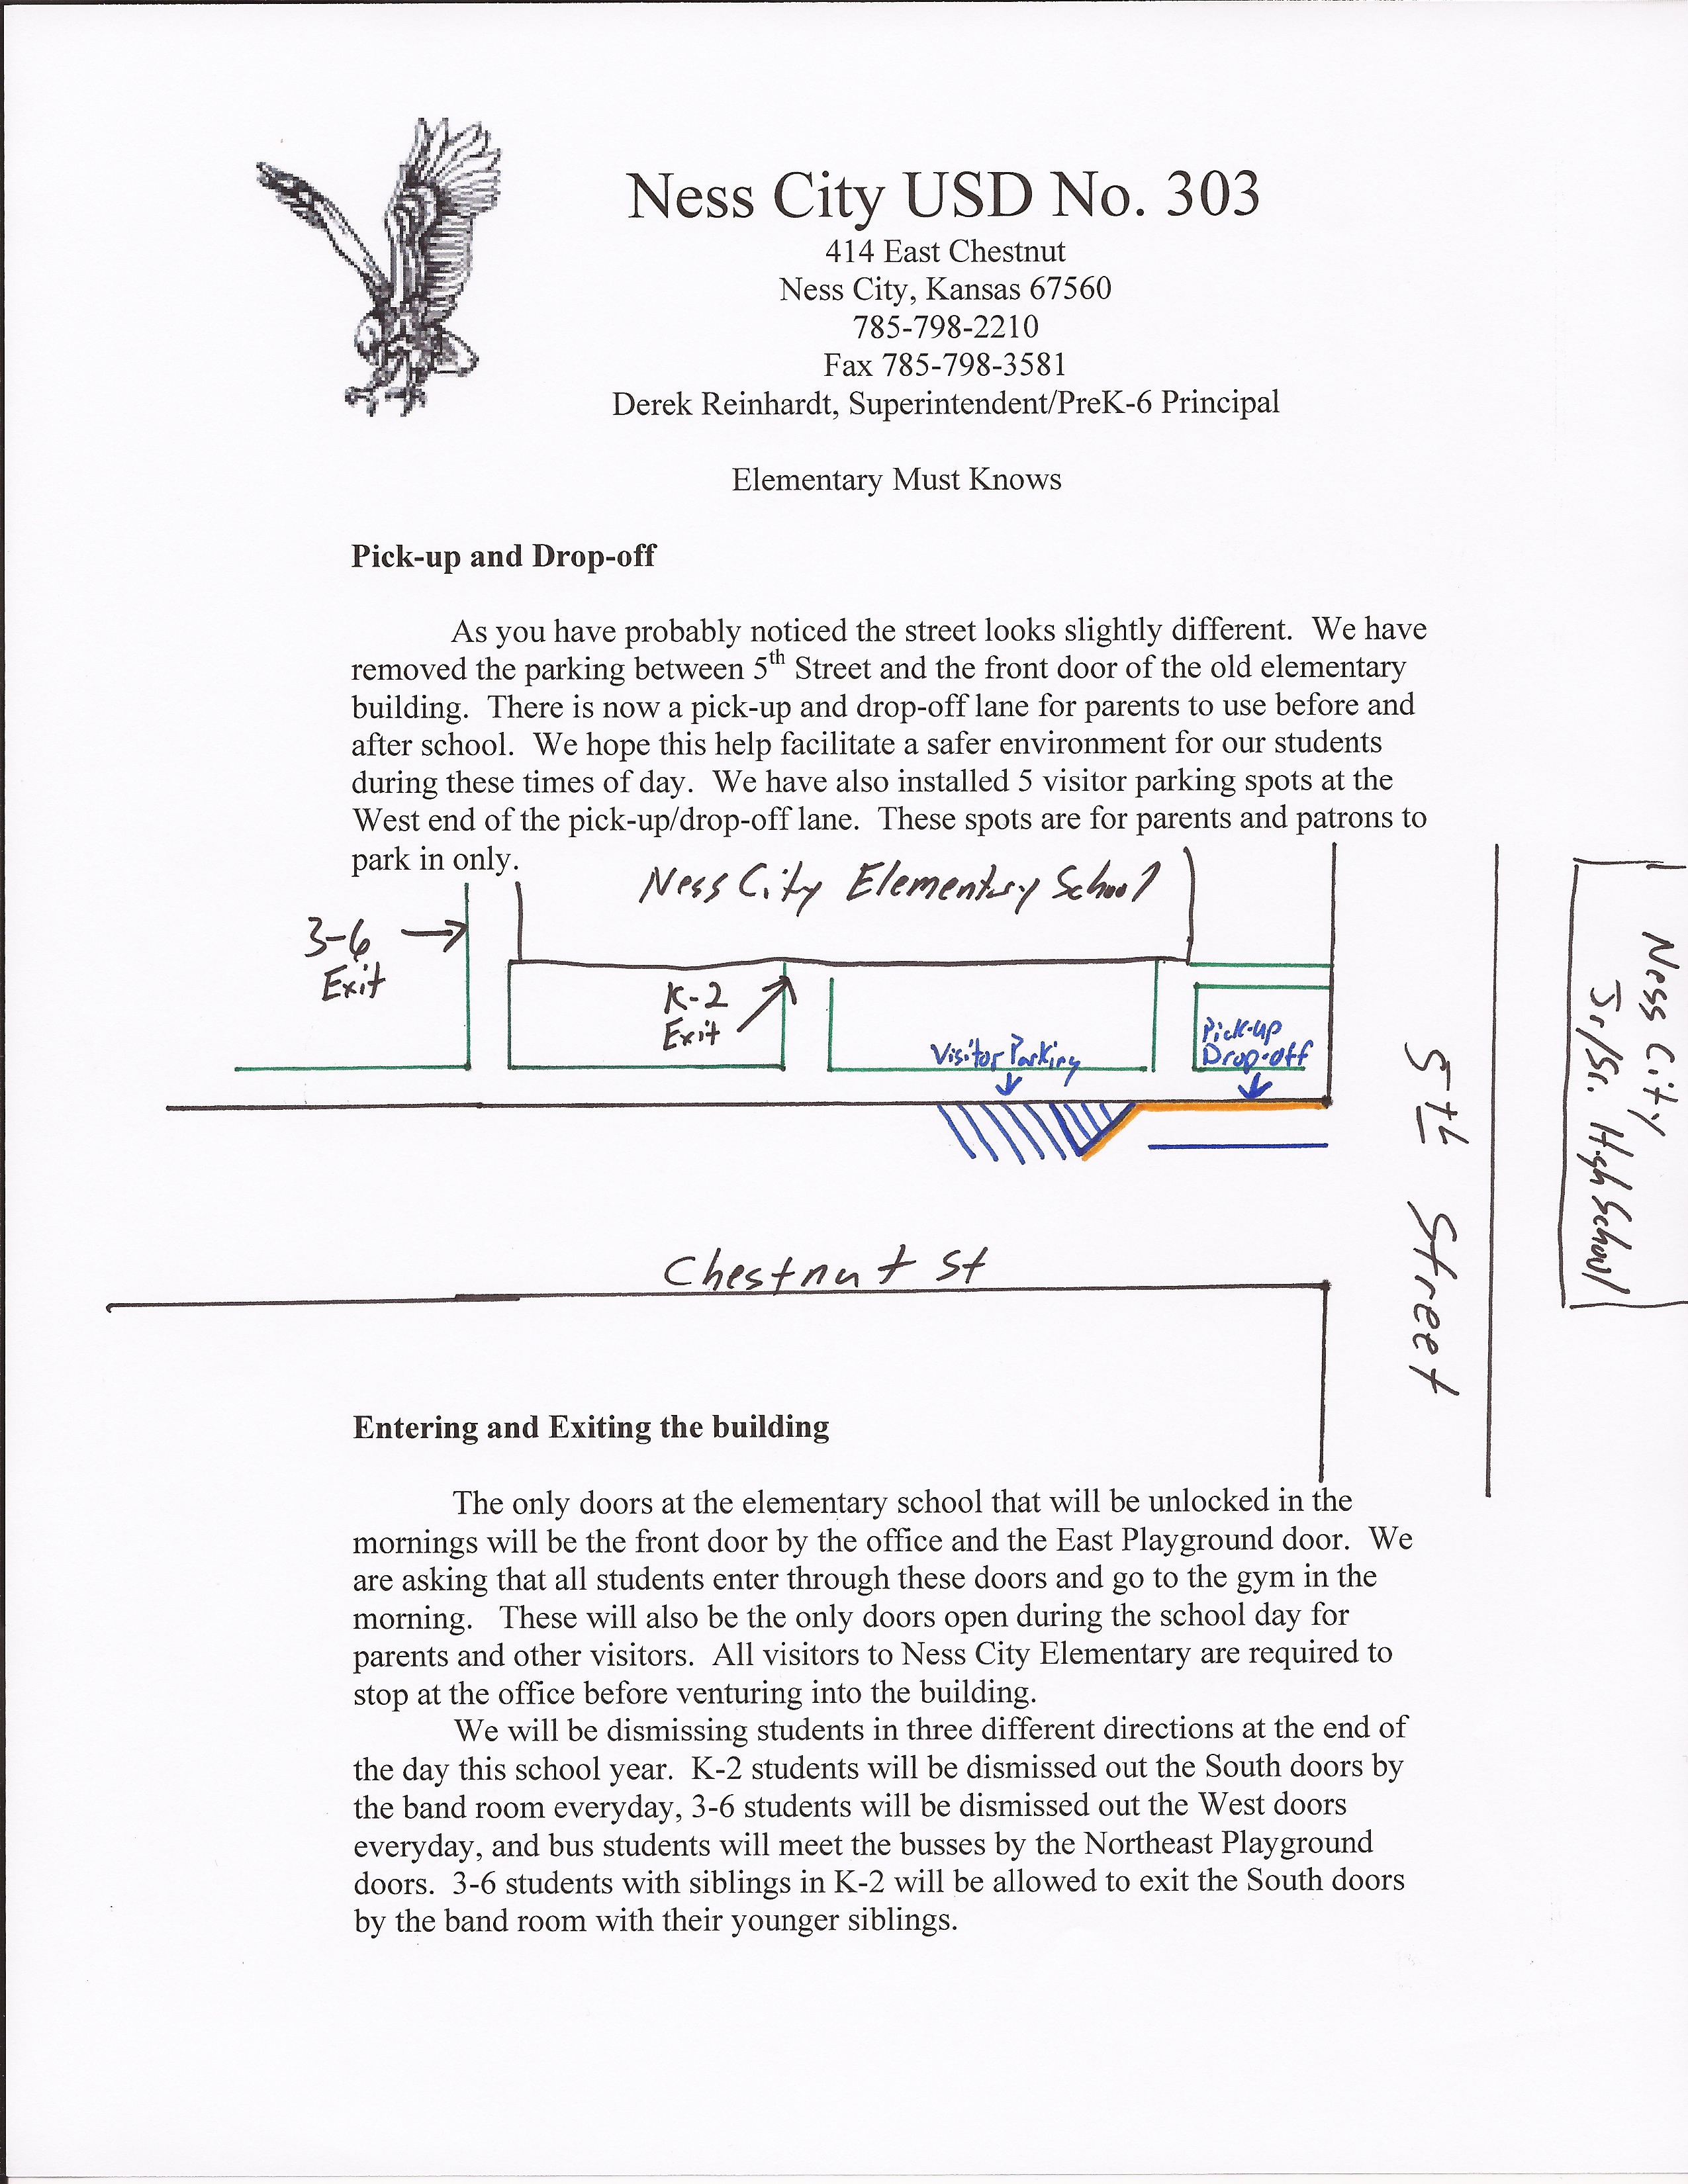 Ness City USD No. 303
414 East Chestnut
Ness City, Kansas 67560
785-798-2210
Fax 785-798-3581
Derek Reinhardt, Superintendent/PreK-6 Principal
Elementary Must Knows
Pick-up and Drop-off
As you have probably noticed the street looks slightly different.  We have
removed the parking between 5th Street and the front door of the old elementary
building.  There is now a pick-up and drop-off lane for parents to use before and
after school.  We hope this help facilitate a safer environment for our students
during these times of day.  We have also installed 5 visitor parking spots at the
West end of the pick-up/drop-off lane.  These spots are for parents and patrons to
park in only.
Ness City Elementary School
3-6
Exit
K-2
Exit
Visitor Parking
Pick-up
Drop-off
5th Street
Ness City
Jr/Sr. High School
Chestnut St
Entering and Exiting the building
The only doors at the elementary school that will be unlocked in the
mornings will be the front door by the office and the East Playground door.  We
are asking that all students enter through these doors and go to the gym in the
morning.   These will also be the only doors open during the school day for
parents and other visitors.  All visitors to Ness City Elementary are required to
stop at the office before venturing into the building.
We will be dismissing students in three different directions at the end of
the day this school year.  K-2 students will be dismissed out the South doors by
the band room everyday, 3-6 students will be dismissed out the West doors
everyday, and bus students will meet the busses by the Northeast Playground
doors.  3-6 students with siblings in K-2 will be allowed to exit the South doors
by the band room with their younger siblings.